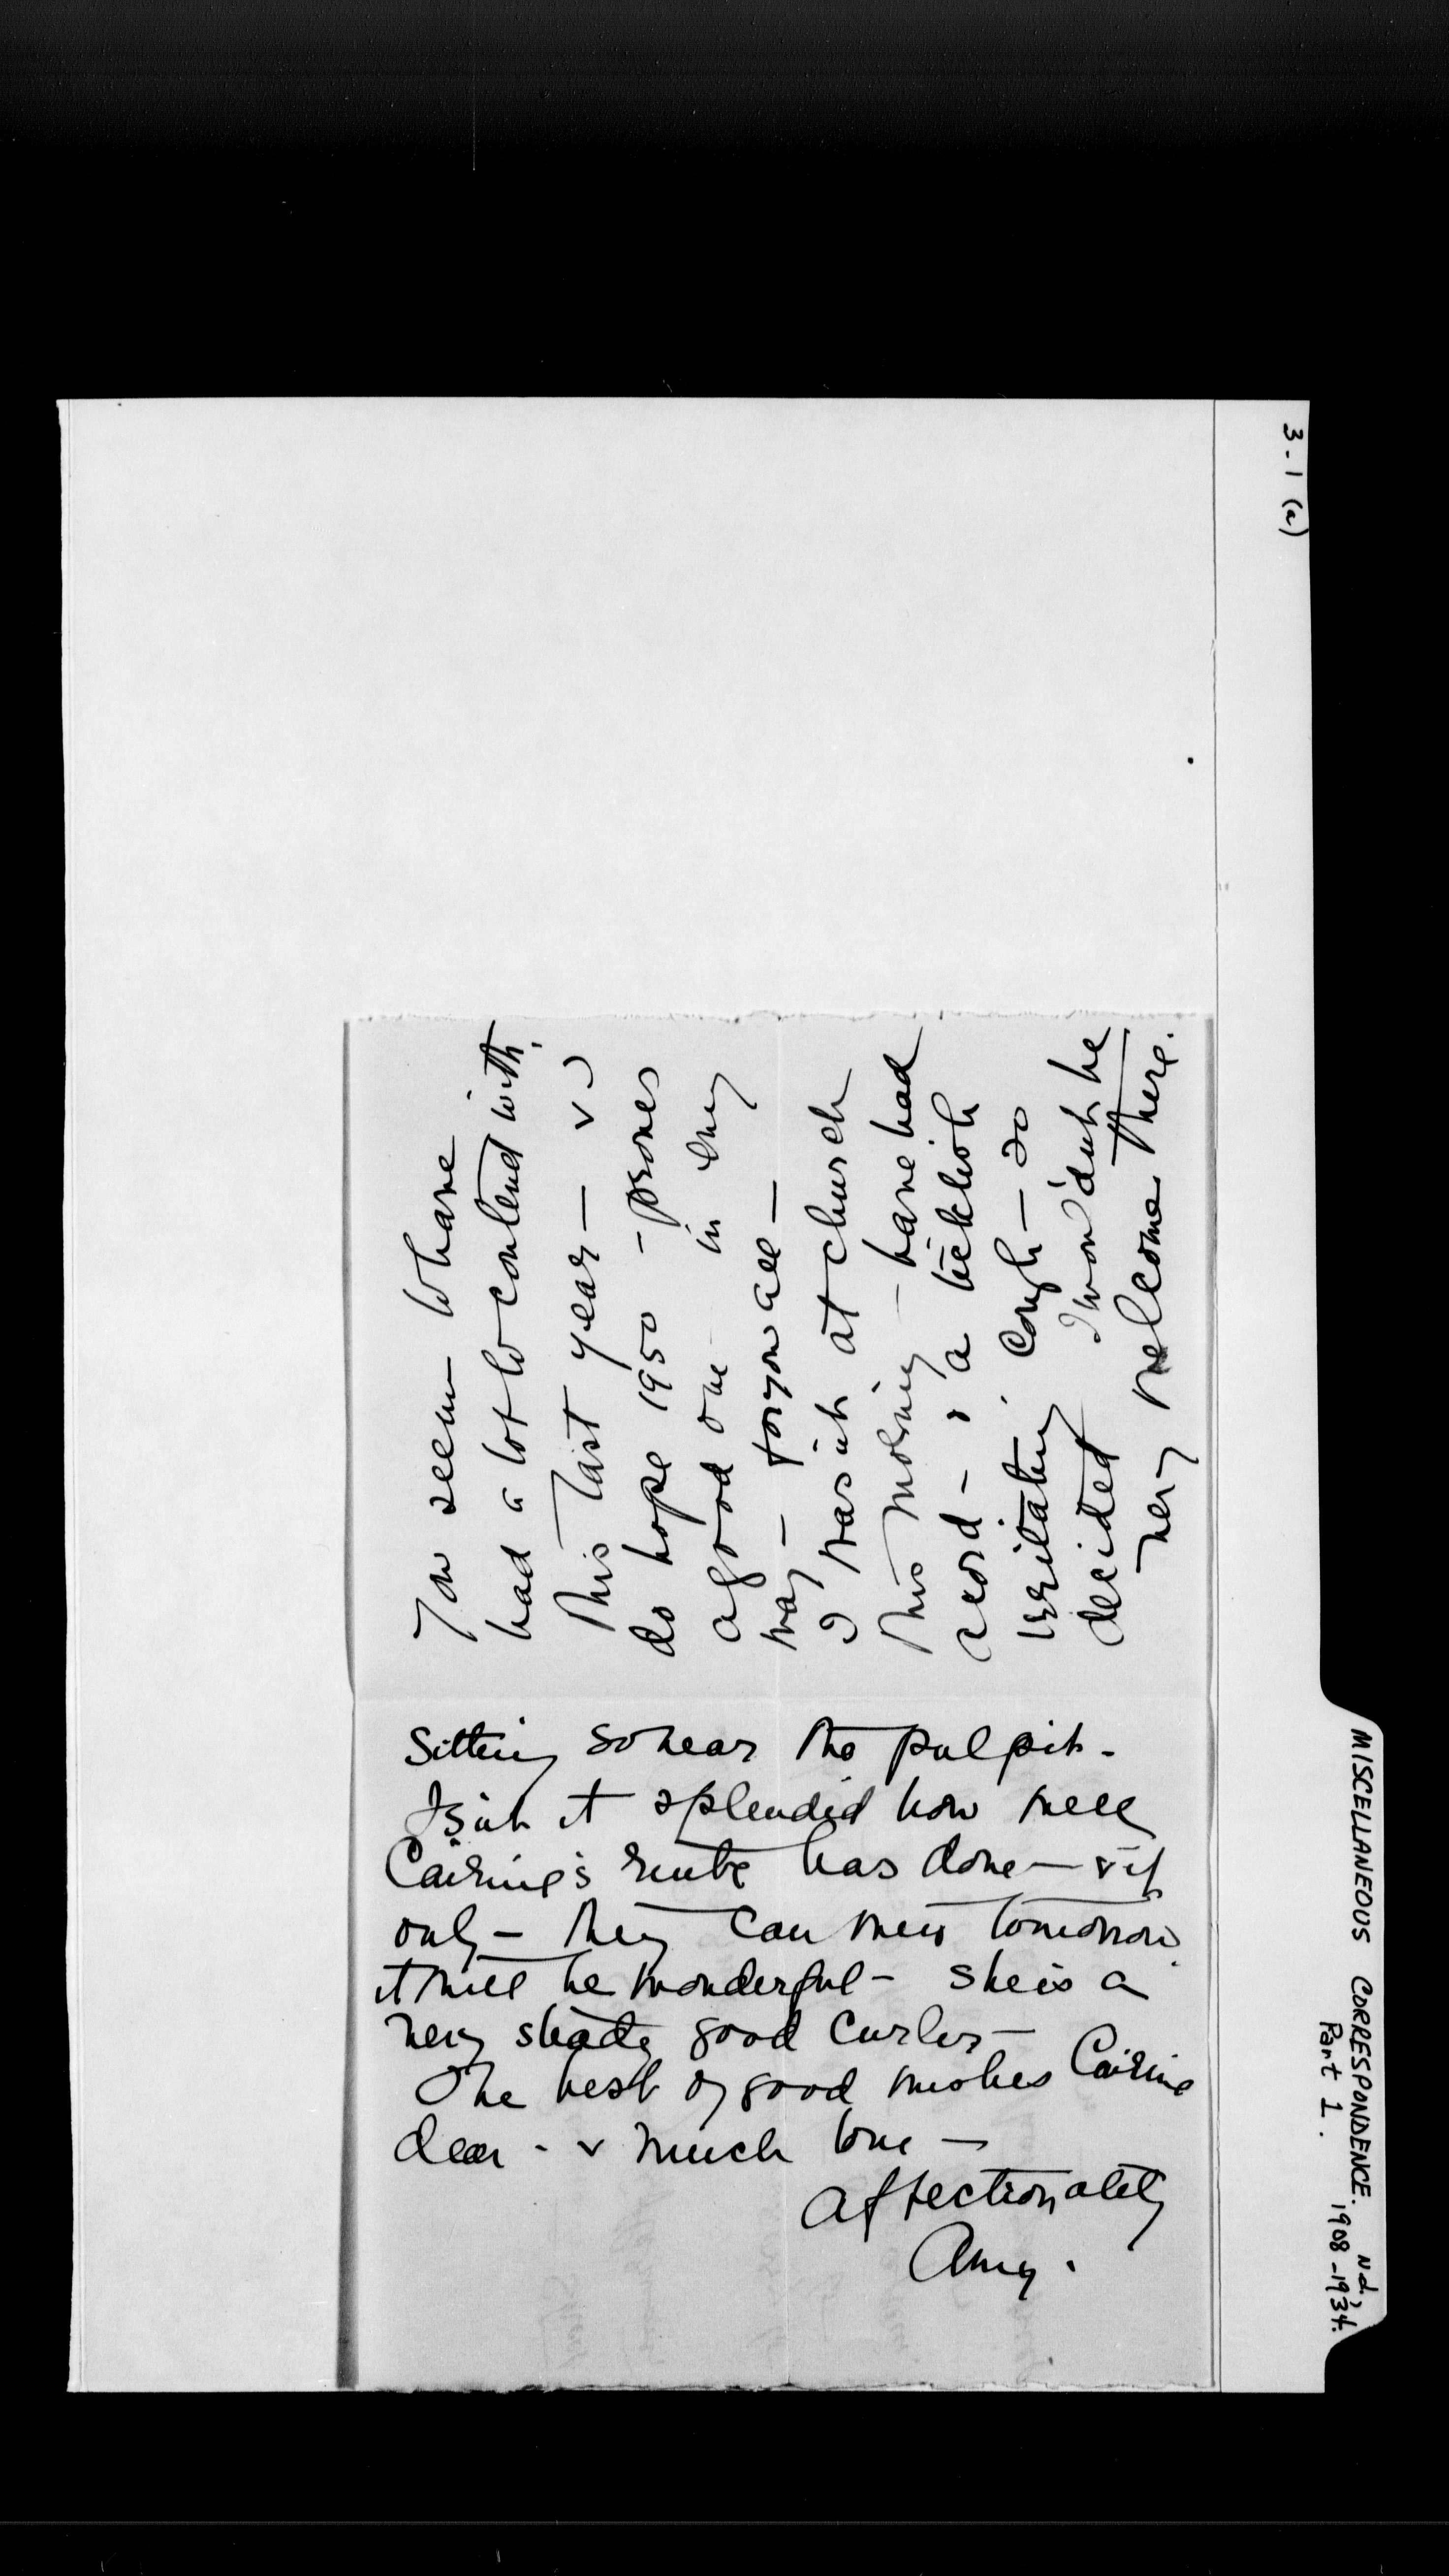 3-1 (a)
MISCELLANEOUS CORRESPONDENCE. N.d.,
Part 1. 1908-1934.
You seem to have
had a lot to contend with,
this last year — & I
do hope 1950 - proves
a good one in every
way — for you all —
I wasn't at church
this morning — have had
a cold - & a ticklish
irritating cough — so
decided I wouldn't be
very welcome there.
Sitting so near the pulpit -
Isn't it splendid how well
Cairine's rink has done — & if
only - they can win tomorrow
it will be wonderful - she is a
very steady good curler —
The best of good wishes Cairine
dear - & much love —
affectionately
Amy.